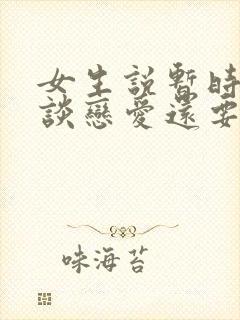 女生説暫時
談戀愛還要
味海苔